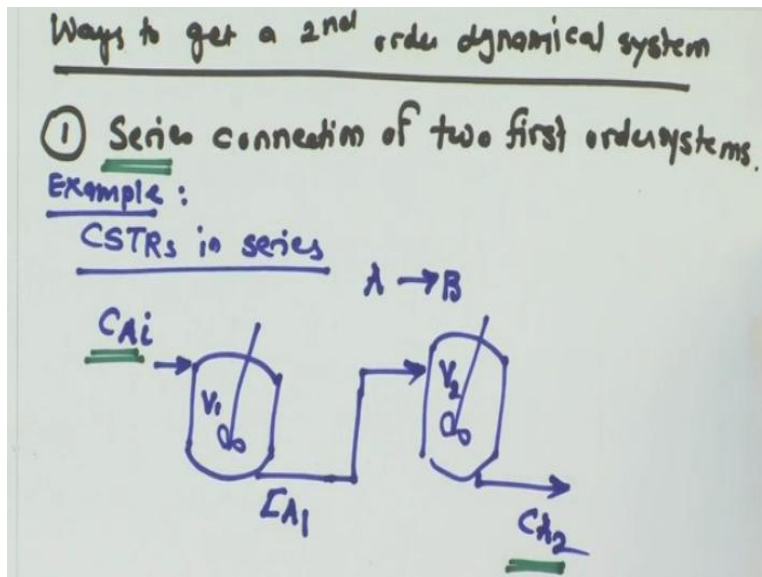 Ways to get a 2nd order dynamical system
① Series connection of two first order systems.
Example:
CSTRs in series
A → B
CAi
V1
V2
CA1
CA2